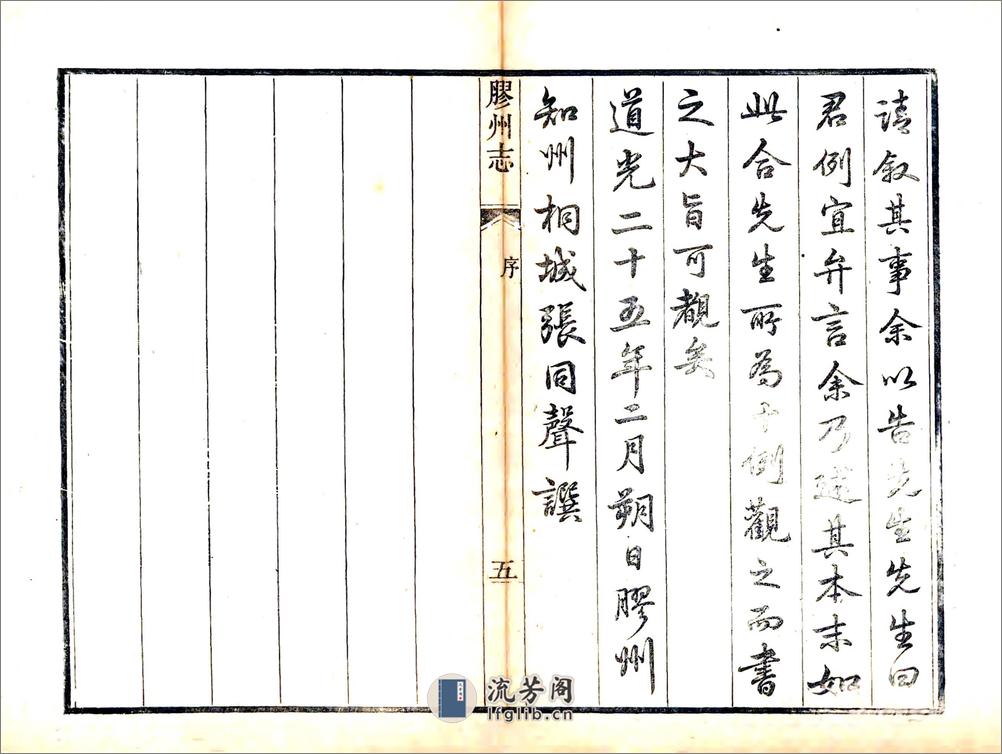 請敘其事余以告先生先生曰
君例宜弁言余乃述其本末如
此合先生所為十例觀之而書
之大旨可覩矣
道光二十五年二月朔日膠州
知州桐城張同聲譔
膠州志
序
五
流芳阁
lfglib.cn